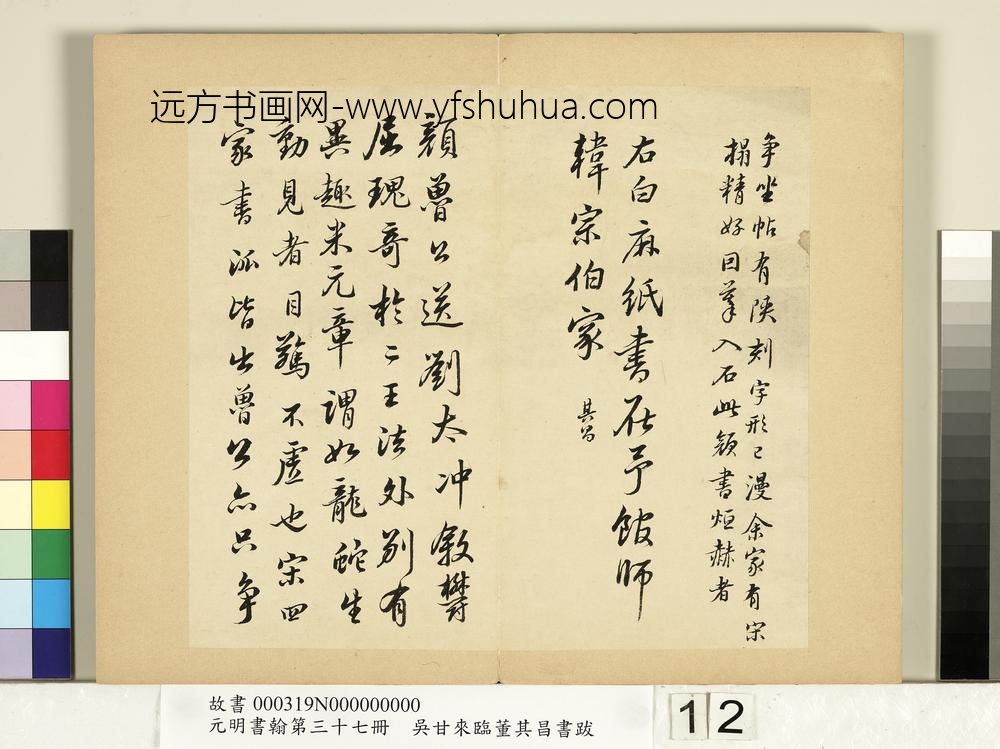 远方书画网-www.yfshuhua.com
争坐帖有陝刻字形已漫余家有宋
搨精好因摹入石此顏書烜赫者
右白麻紙書在予館師
韓宗伯家 其昌
顏魯公送劉太冲敘鬱
屈瑰奇於二王法外別有
異趣米元章謂如龍蛇生
動見者目驚不虛也宋四
家書派皆出魯公亦只争
故書 000319N000000000
元明書翰第三十七冊 吳甘來臨董其昌書跋
12